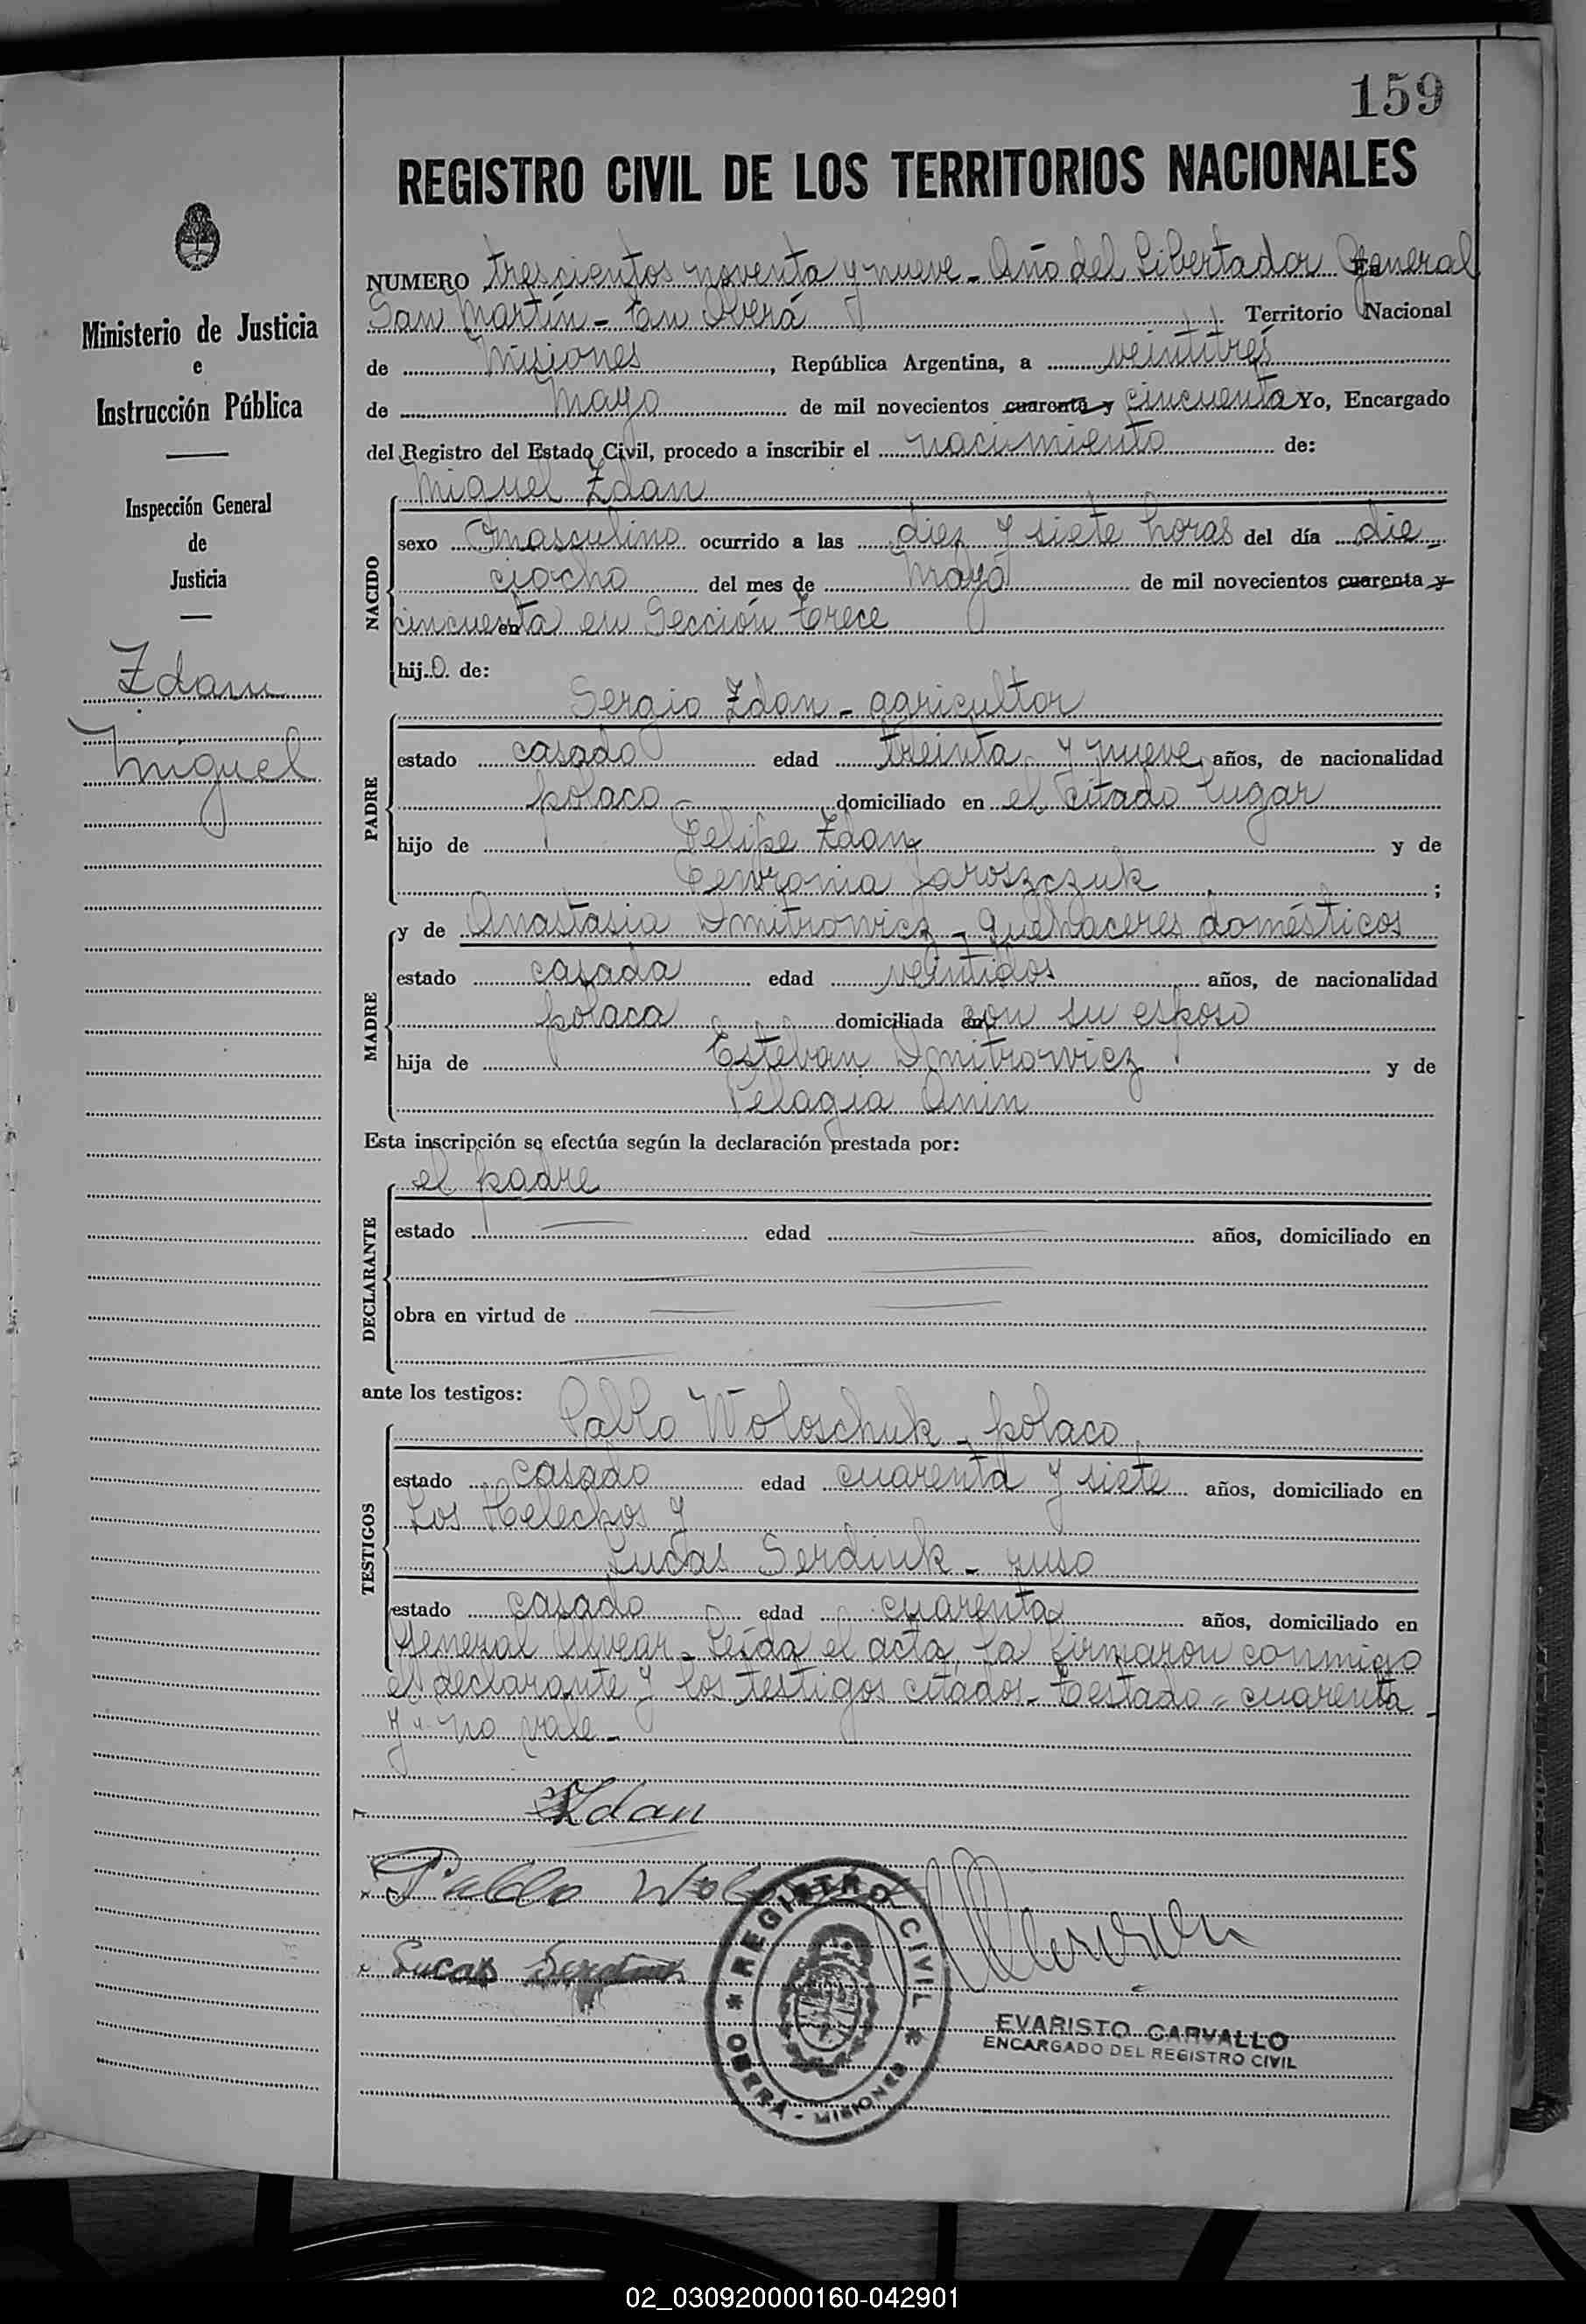 159
REGISTRO CIVIL DE LOS TERRITORIOS NACIONALES
Ministerio de Justicia
e
Instrucción Pública
Inspección General
de
Justicia
Zdan
Miguel
NUMERO trescientos noventa y nueve - Año del Libertador General
San Martín - En Oberá Territorio Nacional
de Misiones, República Argentina, a veintitrés
de Mayo de mil novecientos cuarenta y cincuenta Yo, Encargado
del Registro del Estado Civil, procedo a inscribir el nacimiento de:
Miguel Zdan
NACIDO
sexo masculino ocurrido a las diez y siete horas del día die-
ciocho del mes de Mayo de mil novecientos cuarenta y
cincuenta en Sección Trece
hijo de:
Sergio Zdan - agricultor
PADRE
estado casado edad treinta y nueve años, de nacionalidad
polaco domiciliado en el citado lugar
hijo de Felipe Zdan y de
Jaroszczuk;
y de Anastasia Dmitrowicz - quehaceres domésticos
MADRE
estado casada edad veintidos años, de nacionalidad
polaca domiciliada en con su esposo
hija de Esteban Dmitrowicz y de
Pelagia Anin
Esta inscripción se efectúa según la declaración prestada por:
el padre
DECLARANTE
estado edad años, domiciliado en
obra en virtud de
ante los testigos:
Pablo Woloschuk - polaco
TESTIGOS
estado casado edad cuarenta y siete años, domiciliado en
Los Helechos y
Lucas Serdiuk - ruso
estado casado edad cuarenta años, domiciliado en
General Alvear - Leída el acta, la firmaron conmigo
el declarante y los testigos citados - Testado "cuarenta
y" no vale -
Zdan
Pablo
Lucas
REGISTRO CIVIL
OBERA - MISIONES
EVARISTO CARVALLO
ENCARGADO DEL REGISTRO CIVIL
02_030920000160-042901